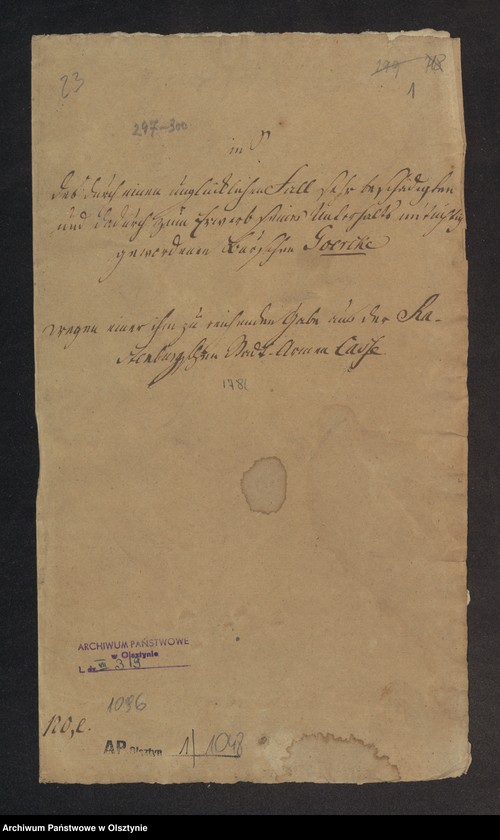 23
299 718
1
297-300
in S
des durch einen unglücklichen Fall sehr beschädigten
und dadurch zum Erwerb seines Unterhalts untüchtig
gewordenen Burschen Goercke
wegen einer ihm zu reichenden Gabe aus der Ra-
stenburgschen Stadt-Armen Casse.
1781
ARCHIWUM PAŃSTWOWE
w Olsztynie
L. dz. VI 319
1096
AP Olsztyn 1/1098
Archiwum Państwowe w Olsztynie